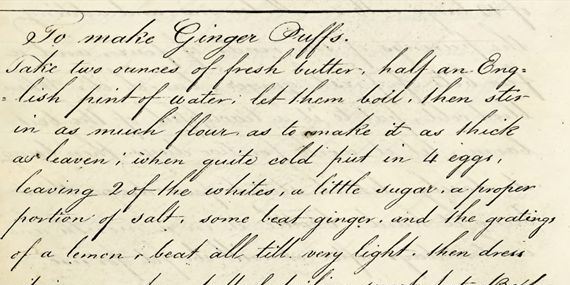 To make Ginger Puffs.
Take two ounces of fresh butter, half an Eng=
=lish pint of water; let them boil, then stir
in as much flour as to make it as thick
as leaven; when quite cold put in 4 eggs,
leaving 2 of the whites, a little sugar, a proper
portion of salt, some beat ginger, and the gratings
of a lemon, beat all till very light, then dress